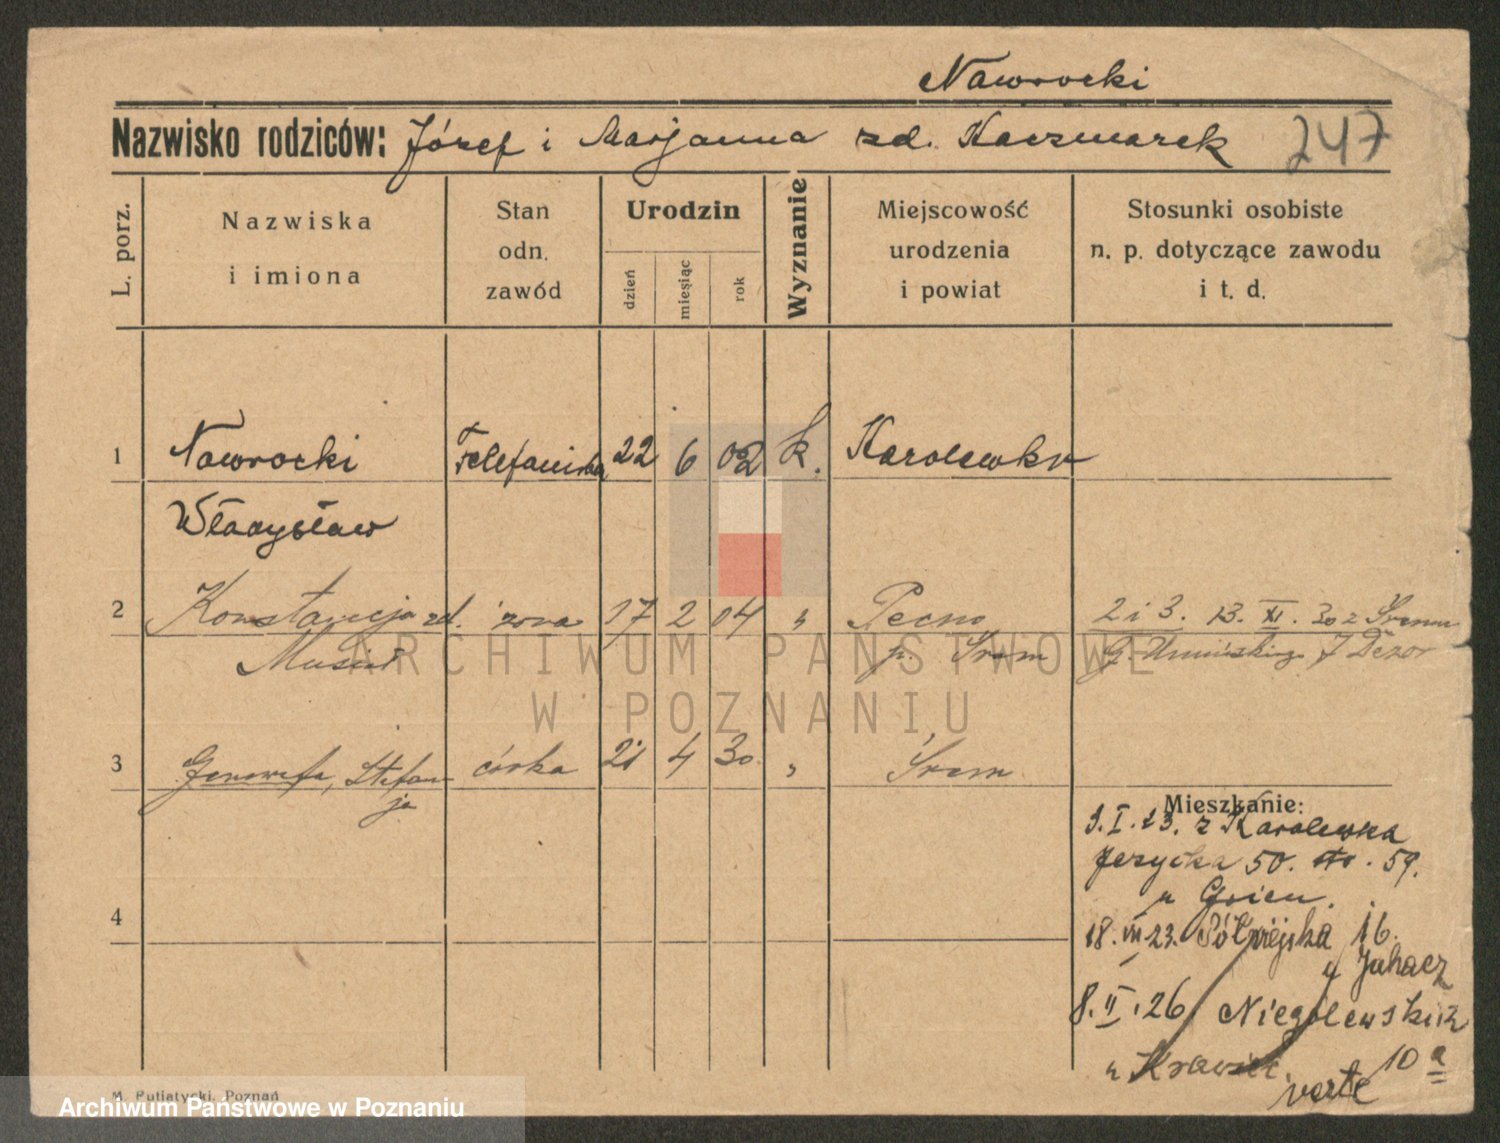 Nawrocki
Nazwisko rodziców: Józef i Marjanna zd. Kaczmarek 247
L. porz.
Nazwiska
i imiona
Stan
odn.
zawód
Urodzin
dzień
miesiąc
rok
Wyznanie
Miejscowość
urodzenia
i powiat
Stosunki osobiste
n. p. dotyczące zawodu
i t. d.
1 Nawrocki 22 6 02 k. Karolewko
Władysław
2 Konstancja zd. żona 17 2 04 " Pecno 2 i 3. 13. XI. 30 z Śremu
Musiał p. Śrem
3 Genowefa, Stefan- córka 21 4 30 " Śrem
ja
Mieszkanie:
3. I. 23. z Karolewka
Jerycka 50. 59.
u
4
18. VII 23. Półwiejska 16.
u
8. II. 26 Niegolewskich
10 a
u Krawiec.
verte
M. Putiatycki, Poznań
ARCHIWUM PAŃSTWOWE
W POZNANIU
Archiwum Państwowe w Poznaniu